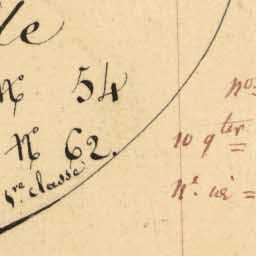 le
N° 54
N° 62.
1re classe
no
10 qter
N°